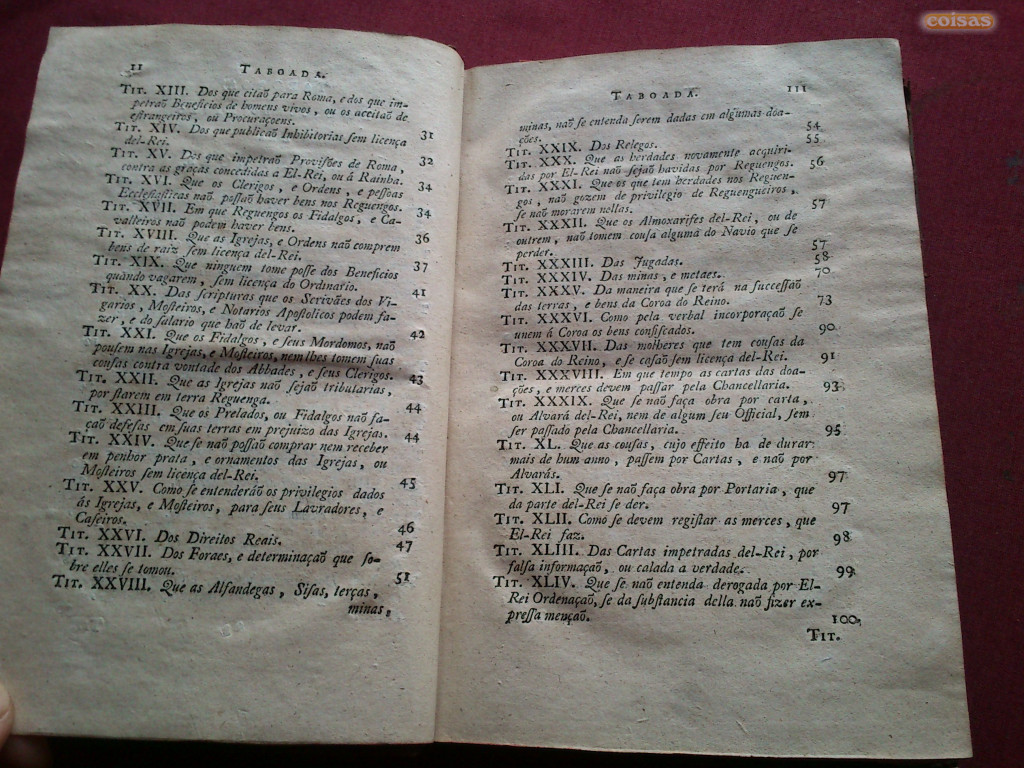 coisas
II TABOADA.
TIT. XIII. Dos que citaõ para Roma, e dos que im-
petraõ Beneficios de homens vivos, ou os aceitaõ de
estrangeiros, ou Procuraçoens. 31
TIT. XIV. Dos que publicaõ Inhibitorias sem licença
del-Rei. 32
TIT. XV. Dos que impetraõ Provisões de Roma,
contra as graças concedidas a El-Rei, ou á Rainha. 34
TIT. XVI. Que os Clerigos, e Ordens, e pessoas
Ecclesiasticas naõ possaõ haver bens nos Reguengos. 34
TIT. XVII. Em que Reguengos os Fidalgos, e Ca-
valleiros naõ podem haver bens. 36
TIT. XVIII. Que as Igrejas, e Ordens naõ comprem
bens de raiz sem licença del-Rei. 37
TIT. XIX. Que ninguem tome posse dos Beneficios
quando vagarem, sem licença do Ordinario. 41
TIT. XX. Das scripturas que os Scrivães dos Vi-
garios, Mosteiros, e Notarios Apostolicos podem fa-
zer, e do salario que haõ de levar. 42
TIT. XXI. Que os Fidalgos, e seus Mordomos, naõ
pousem nas Igrejas, e Mosteiros, nem lhes tomem suas
cousas contra vontade dos Abbades, e seus Clerigos. 43
TIT. XXII. Que as Igrejas naõ sejaõ tributarias,
por starem em terra Reguenga. 44
TIT. XXIII. Que os Prelados, ou Fidalgos naõ fa-
çaõ defesas em suas terras em prejuizo das Igrejas. 44
TIT. XXIV. Que se naõ possaõ comprar nem receber
em penhor prata, e ornamentos das Igrejas, ou
Mosteiros sem licença del-Rei. 45
TIT. XXV. Como se entenderáõ os privilegios dados
ás Igrejas, e Mosteiros, para seus Lavradores, e
Caseiros. 46
TIT. XXVI. Dos Direitos Reais. 47
TIT. XXVII. Dos Foraes, e determinaçaõ que so-
bre elles se tomou. 51
TIT. XXVIII. Que as Alfandegas, Sisas, terças,
minas,
TABOADA. III
minas, naõ se entenda serem dadas em algumas doa-
ções. 54
TIT. XXIX. Dos Relegos. 55
TIT. XXX. Que as herdades novamente acquiri-
das por El-Rei naõ sejaõ havidas por Reguengos. 56
TIT. XXXI. Que os que tem herdades nos Reguen-
gos, naõ gozem de privilegio de Reguengueiros,
se naõ morarem nellas. 57
TIT. XXXII. Que os Almoxarifes del-Rei, ou de
outrem, naõ tomem cousa alguma do Navio que se
perder. 57
TIT. XXXIII. Das Jugadas. 58
TIT. XXXIV. Das minas, e metaes. 70
TIT. XXXV. Da maneira que se terá na successaõ
das terras, e bens da Coroa do Reino. 73
TIT. XXXVI. Como pela verbal incorporaçaõ se
unem á Coroa os bens confiscados. 90
TIT. XXXVII. Das molheres que tem cousas da
Coroa do Reino, e se casaõ sem licença del-Rei. 91
TIT. XXXVIII. Em que tempo as cartas das doa-
ções, e merces devem passar pela Chancellaria. 93
TIT. XXXIX. Que se naõ faça obra por carta,
ou Alvará del-Rei, nem de algum seu Official, sem
ser passado pela Chancellaria. 95
TIT. XL. Que as cousas, cujo effeito ha de durar
mais de hum anno, passem por Cartas, e naõ por
Alvarás. 97
TIT. XLI. Que se naõ faça obra por Portaria, que
da parte del-Rei se der. 97
TIT. XLII. Como se devem registar as merces, que
El-Rei faz. 98
TIT. XLIII. Das Cartas impetradas del-Rei, por
falsa informaçaõ, ou calada a verdade. 99
TIT. XLIV. Que se naõ entenda derogada por El-
Rei Ordenaçaõ, se da substancia della naõ fizer ex-
pressa mençaõ. 100
TIT.